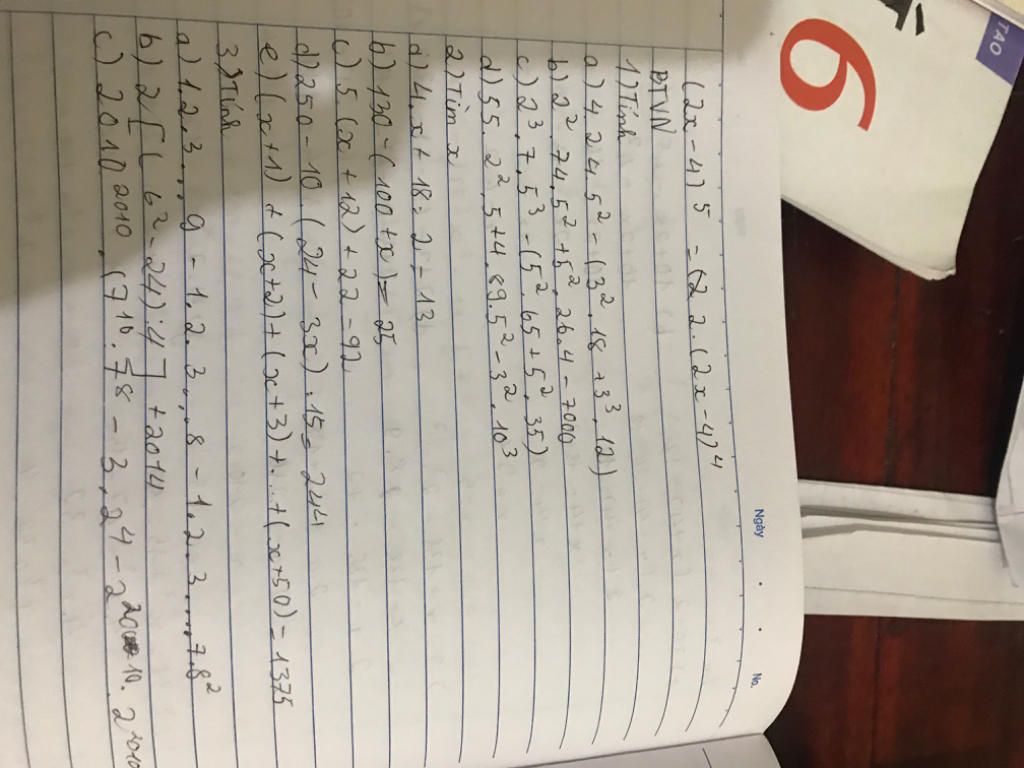 TẠO
6
Ngày
No.
(2x - 4)5 = (2 2. (2x - 4)4
BTVN
1) Tính
a) 4 2 4. 5² - (3². 18 + 3³. 12)
b) 2² 74. 5² + 5². 26. 4 - 7000
c) 2³ 7. 5³ - (5². 65 + 5². 35)
d) 55. 2² 5 + 4. 89. 5² - 3². 10³
2) Tìm x
a) 4. x + 18 : 2 = 13
b) 130 - (100 + x) = 25
c) 5. (x + 12) + 22 = 92
d) 250 - 10. (24 - 3x) : 15 = 244
e) (x + 1) + (x + 2) + (x + 3) + .. + (x + 50) = 1375
3) Tính
a) 1. 2. 3 ... 9 - 1. 2. 3 ... 8 - 1. 2. 3 .... 7. 8²
b) 2[( 6² - 24) : 4 ] + 2014
c) 2010²⁰¹⁰. (7¹⁰ : 7 8 - 3. 2 4 - 2